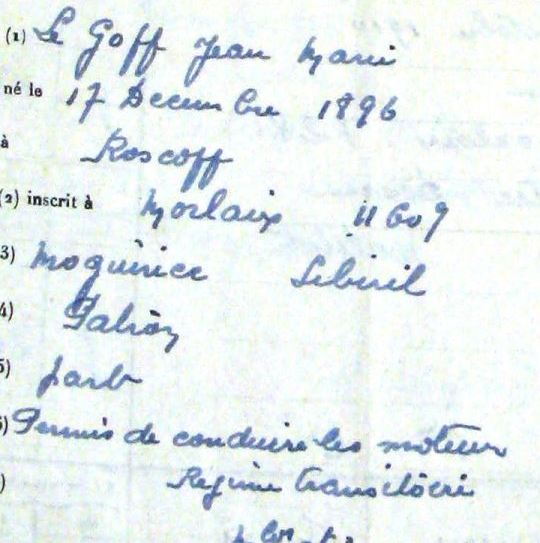 (1) Le Goff Jean Marie
né le 17 Decembre 1896
à Roscoff
(2) inscrit à Morlaix 11609
3) Moguérice Sibiril
4) Patron
5)
6) Permis de conduire les moteurs
) Regime transitoire